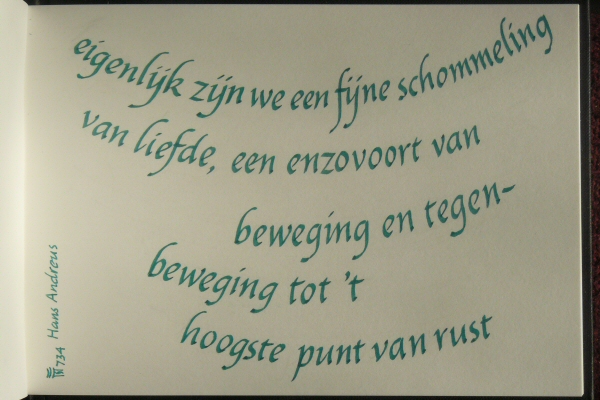 eigenlijk zijn we een fijne schommeling
van liefde, een enzovoort van
beweging en tegen-
beweging tot 't
hoogste punt van rust
734 Hans Andreus